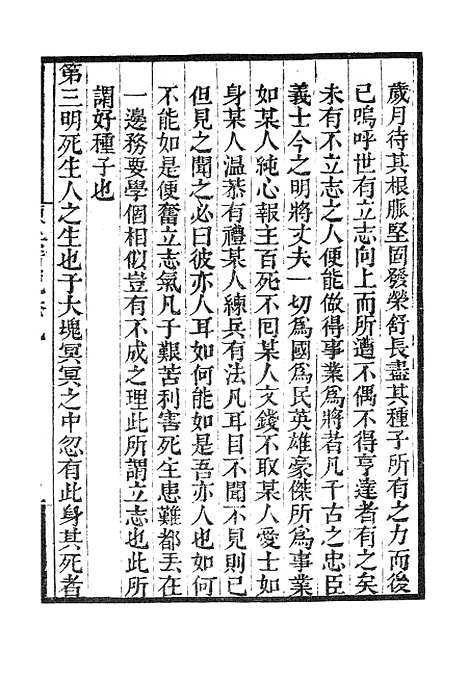 歲月待其根脈堅固發榮舒長盡其種子所有之力而後
己嗚呼世有立志向上而所遭不偶不得亨達者有之矣
未有不立志之人便能做得事業為將者凡千古之忠臣
義士今之明將丈夫一切為國為民英雄豪傑所為事業
如某人純心報主百死不囘某人文錢不取某人愛士如
身某人溫恭有禮某人練兵有法凡耳目不聞不見則已
但見之聞之必曰彼亦人耳如何能如是吾亦人也如何
不能如是便奮立志氣凡于艱苦利害死生患難都丟在
一邊務要學個相似豈有不成之理此所謂立志也此所
謂好種子也
第三明死生人之生也于大塊冥冥之中忽有此身其死者